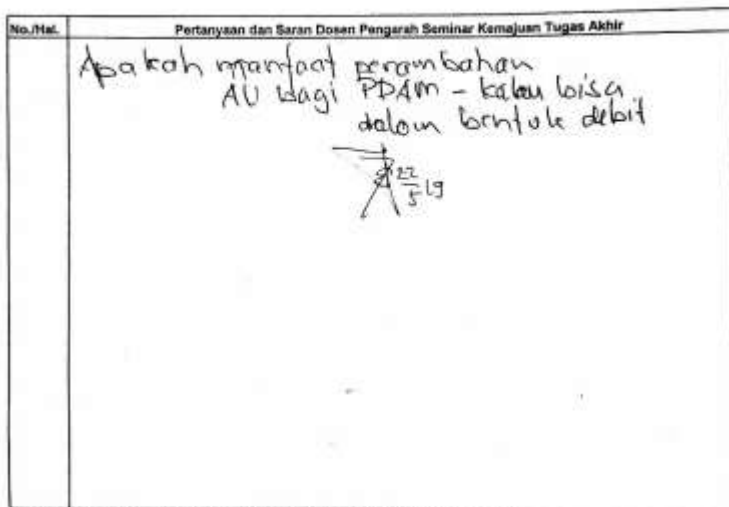 No./Hal.
Pertanyaan dan Saran Dosen Pengarah Seminar Kemajuan Tugas Akhir
Apakah manfaat penambahan
AU bagi PDAM - kalau bisa
dalam bentuk debit
22/5 19